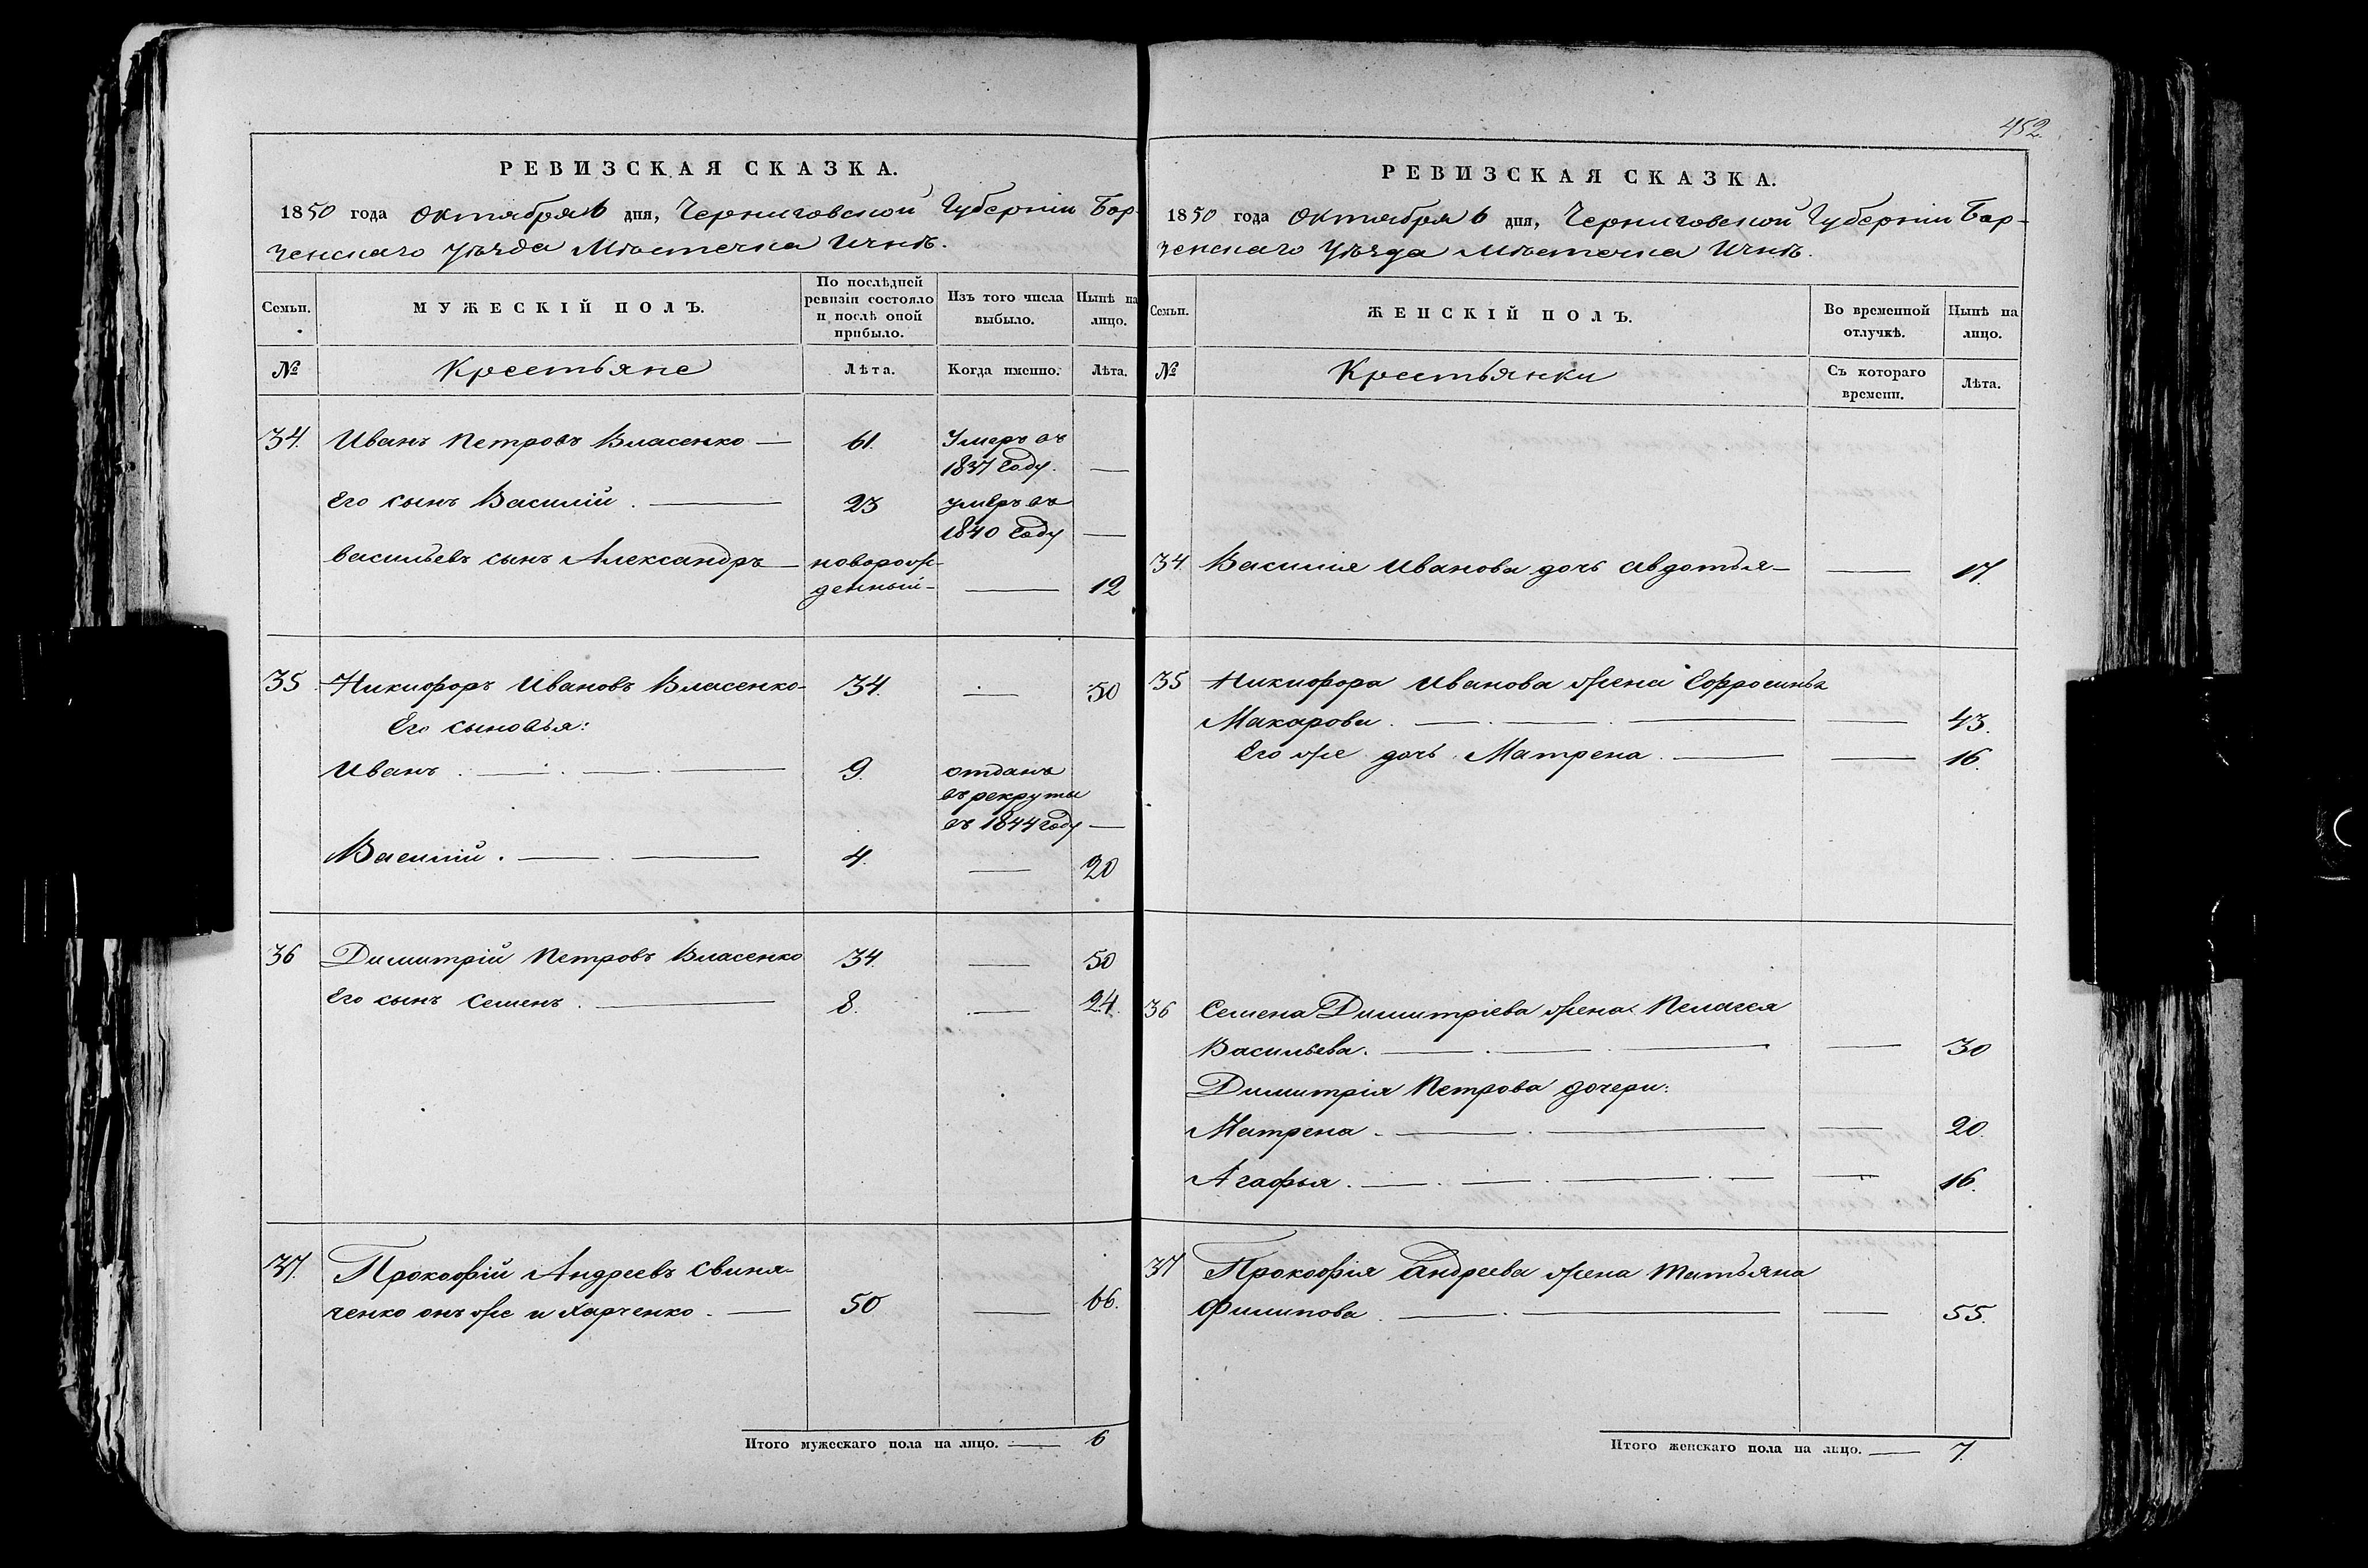 РЕВИЗСКАЯ СКАЗКА.
1850 года Октября 6 дня, Черниговской Губерніи Бор-
зенскаго Уѣзда Мѣстечка Ичнѣ.
Семьи.
МУЖЕСКІЙ ПОЛЪ.
По послѣдней ревизіи состояло и послѣ оной прибыло.
Изъ того числа выбыло.
Нынѣ на лицо.
№
Крестьяне
Лѣта.
Когда именно.
Лѣта.
34. Иванъ Петровъ Власенко — 61. Умеръ въ
1837 году. —
Его сынъ Василій . — 23 умеръ въ
1840 году —
Васильевъ сынъ Александръ — новорож-
денный — — 12
35 Никифоръ Ивановъ Власенко - 34. — 50
Его сыновья:
Иванъ . — . — . — 9. отданъ
въ рекруты
въ 1844 году —
Василій . — . — 4. — 20
36 Димитрій Петровъ Власенко 34. — 50
Его сынъ Семенъ . — 8. — 24.
37. Прокофій Андреевъ Свиня-
ченко онъ же и Харченко . — 50 — 66.
Итого мужескаго пола на лицо. — 6
452.
РЕВИЗСКАЯ СКАЗКА.
1850 года Октября 6 дня, Черниговской Губерніи Бор-
зенскаго Уѣзда Мѣстечка Ичнѣ.
Семьи.
ЖЕНСКІЙ ПОЛЪ.
Во временной отлучкѣ.
Нынѣ на лицо.
№
Крестьянки
Съ котораго времени.
Лѣта.
34. Василія Иванова дочь Авдотья — — 17.
35 Никифора Иванова жена Ефросинья
Макарова . — . — . — — 43.
Его же дочь Матрена . — — 16.
36 Семена Димитріева жена Пелагея
Васильева . — . — . — — 30
Димитрія Петрова дочери:
Матрена . — . — — 20.
Агафья . — . — . — . — — 16.
37 Прокофія Андреева жена Татьяна
Филипова . — . — — 55.
Итого женскаго пола на лицо. — 7.